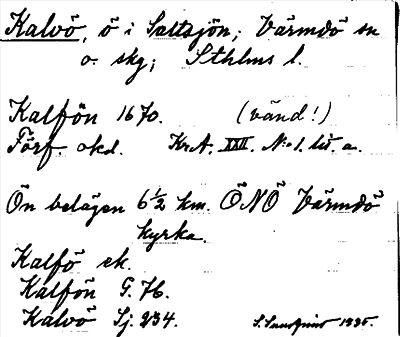 Kalvö, ö i Saltsjön; Värmdö sn
o. skg; Sthlms l.
Kalfön 1670. (vänd!)
Förf. okd. Kr.A. XXII. N:o 1. lit. a.
Ön belägen 6½ km. ÖNÖ Värmdö
kyrka.
Kalfö ek.
Kalfön G. 76.
Kalvö Sj. 234. S. Sundquist 1935.